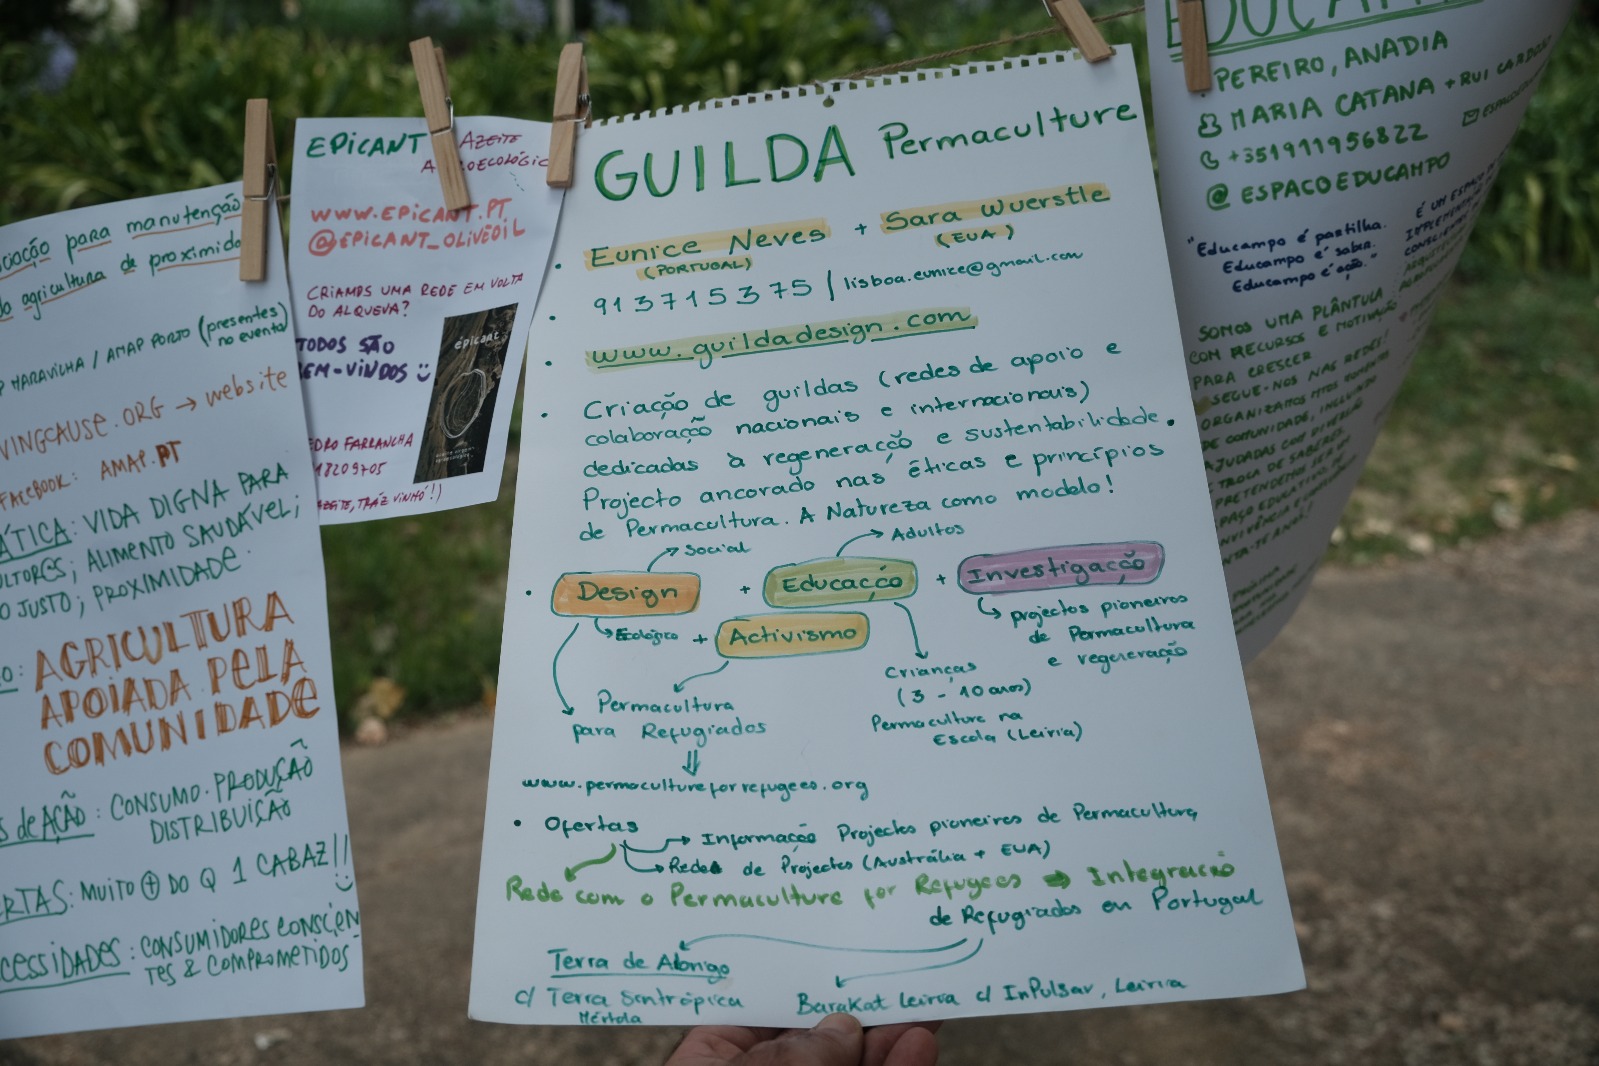 ciação para manutenção
da agricultura de proximida
MARAVILHA / AMAP PORTO (presentes
no evento)
VINGCAUSE.ORG → website
FACEBOOK: AMAP.PT
ÁTICA: VIDA DIGNA PARA
ULTORES; ALIMENTO SAUDÁVEL;
O JUSTO; PROXIMIDADE.
O: AGRICULTURA
APOIADA PELA
COMUNIDADE
S de AÇÃO: CONSUMO. PRODUÇÃO
DISTRIBUIÇÃO
ERTAS: MUITO ⊕ DO Q 1 CABAZ!!
CESSIDADES: CONSUMIDORES CONSCIEN
TES & COMPROMETIDOS
EPICANT AZEITE
WWW.EPICANT.PT
@EPICANT_OLIVEOIL
CRIAMOS UMA REDE EM VOLTA
DO ALQUEVA?
TODOS SÃO
BEM-VINDOS
epicant
EDRO FARRANCHA
18209705
AZEITE, TRAZ VINHO!)
GUILDA Permaculture
• Eunice Neves + Sara Wuerstle
(PORTUGAL) (EUA)
• 913715375 / lisboa.eunice@gmail.com
• www.guildadesign.com
• Criação de guildas (redes de apoio e
colaboração nacionais e internacionais)
dedicadas à regeneração e sustentabilidade.
Projecto ancorado nas éticas e princípios
de Permacultura. A Natureza como modelo!
→ Social → Adultos
• Design + Educação + Investigação
→ Ecológico + Activismo
→ projectos pioneiros
de Permacultura
e regeneração
Crianças
(3 - 10 anos)
Permaculture na
Escola (Leiria)
Permacultura
para Refugiados
www.permacultureforrefugees.org
• Ofertas → Informação Projectos pioneiros de Permacultura
→ Redes de Projectos (Austrália + EUA)
Rede com o Permaculture for Refugees → Integração
de Refugiados em Portugal
Terra de Abrigo
c/ Terra Sintrópica
Mértola
BaraKat Leiria c/ InPulsar, Leiria
EDUCAMPO
PEREIRO, ANADIA
MARIA CATANA + RUI CARDOSO
+351911956822
@ ESPACOEDUCAMPO
"Educampo é partilha.
Educampo é saber.
Educampo é ação."
É UM ESPAÇO
SOMOS UMA PLÂNTULA
COM RECURSOS E MOTIVAÇÃO
PARA CRESCER
SEGUE-NOS NAS REDES!
ORGANIZAMOS
DE COMUNIDADE, INCLUINDO
AJUDADAS COM DIVERSÃO
TROCA DE SABERES.